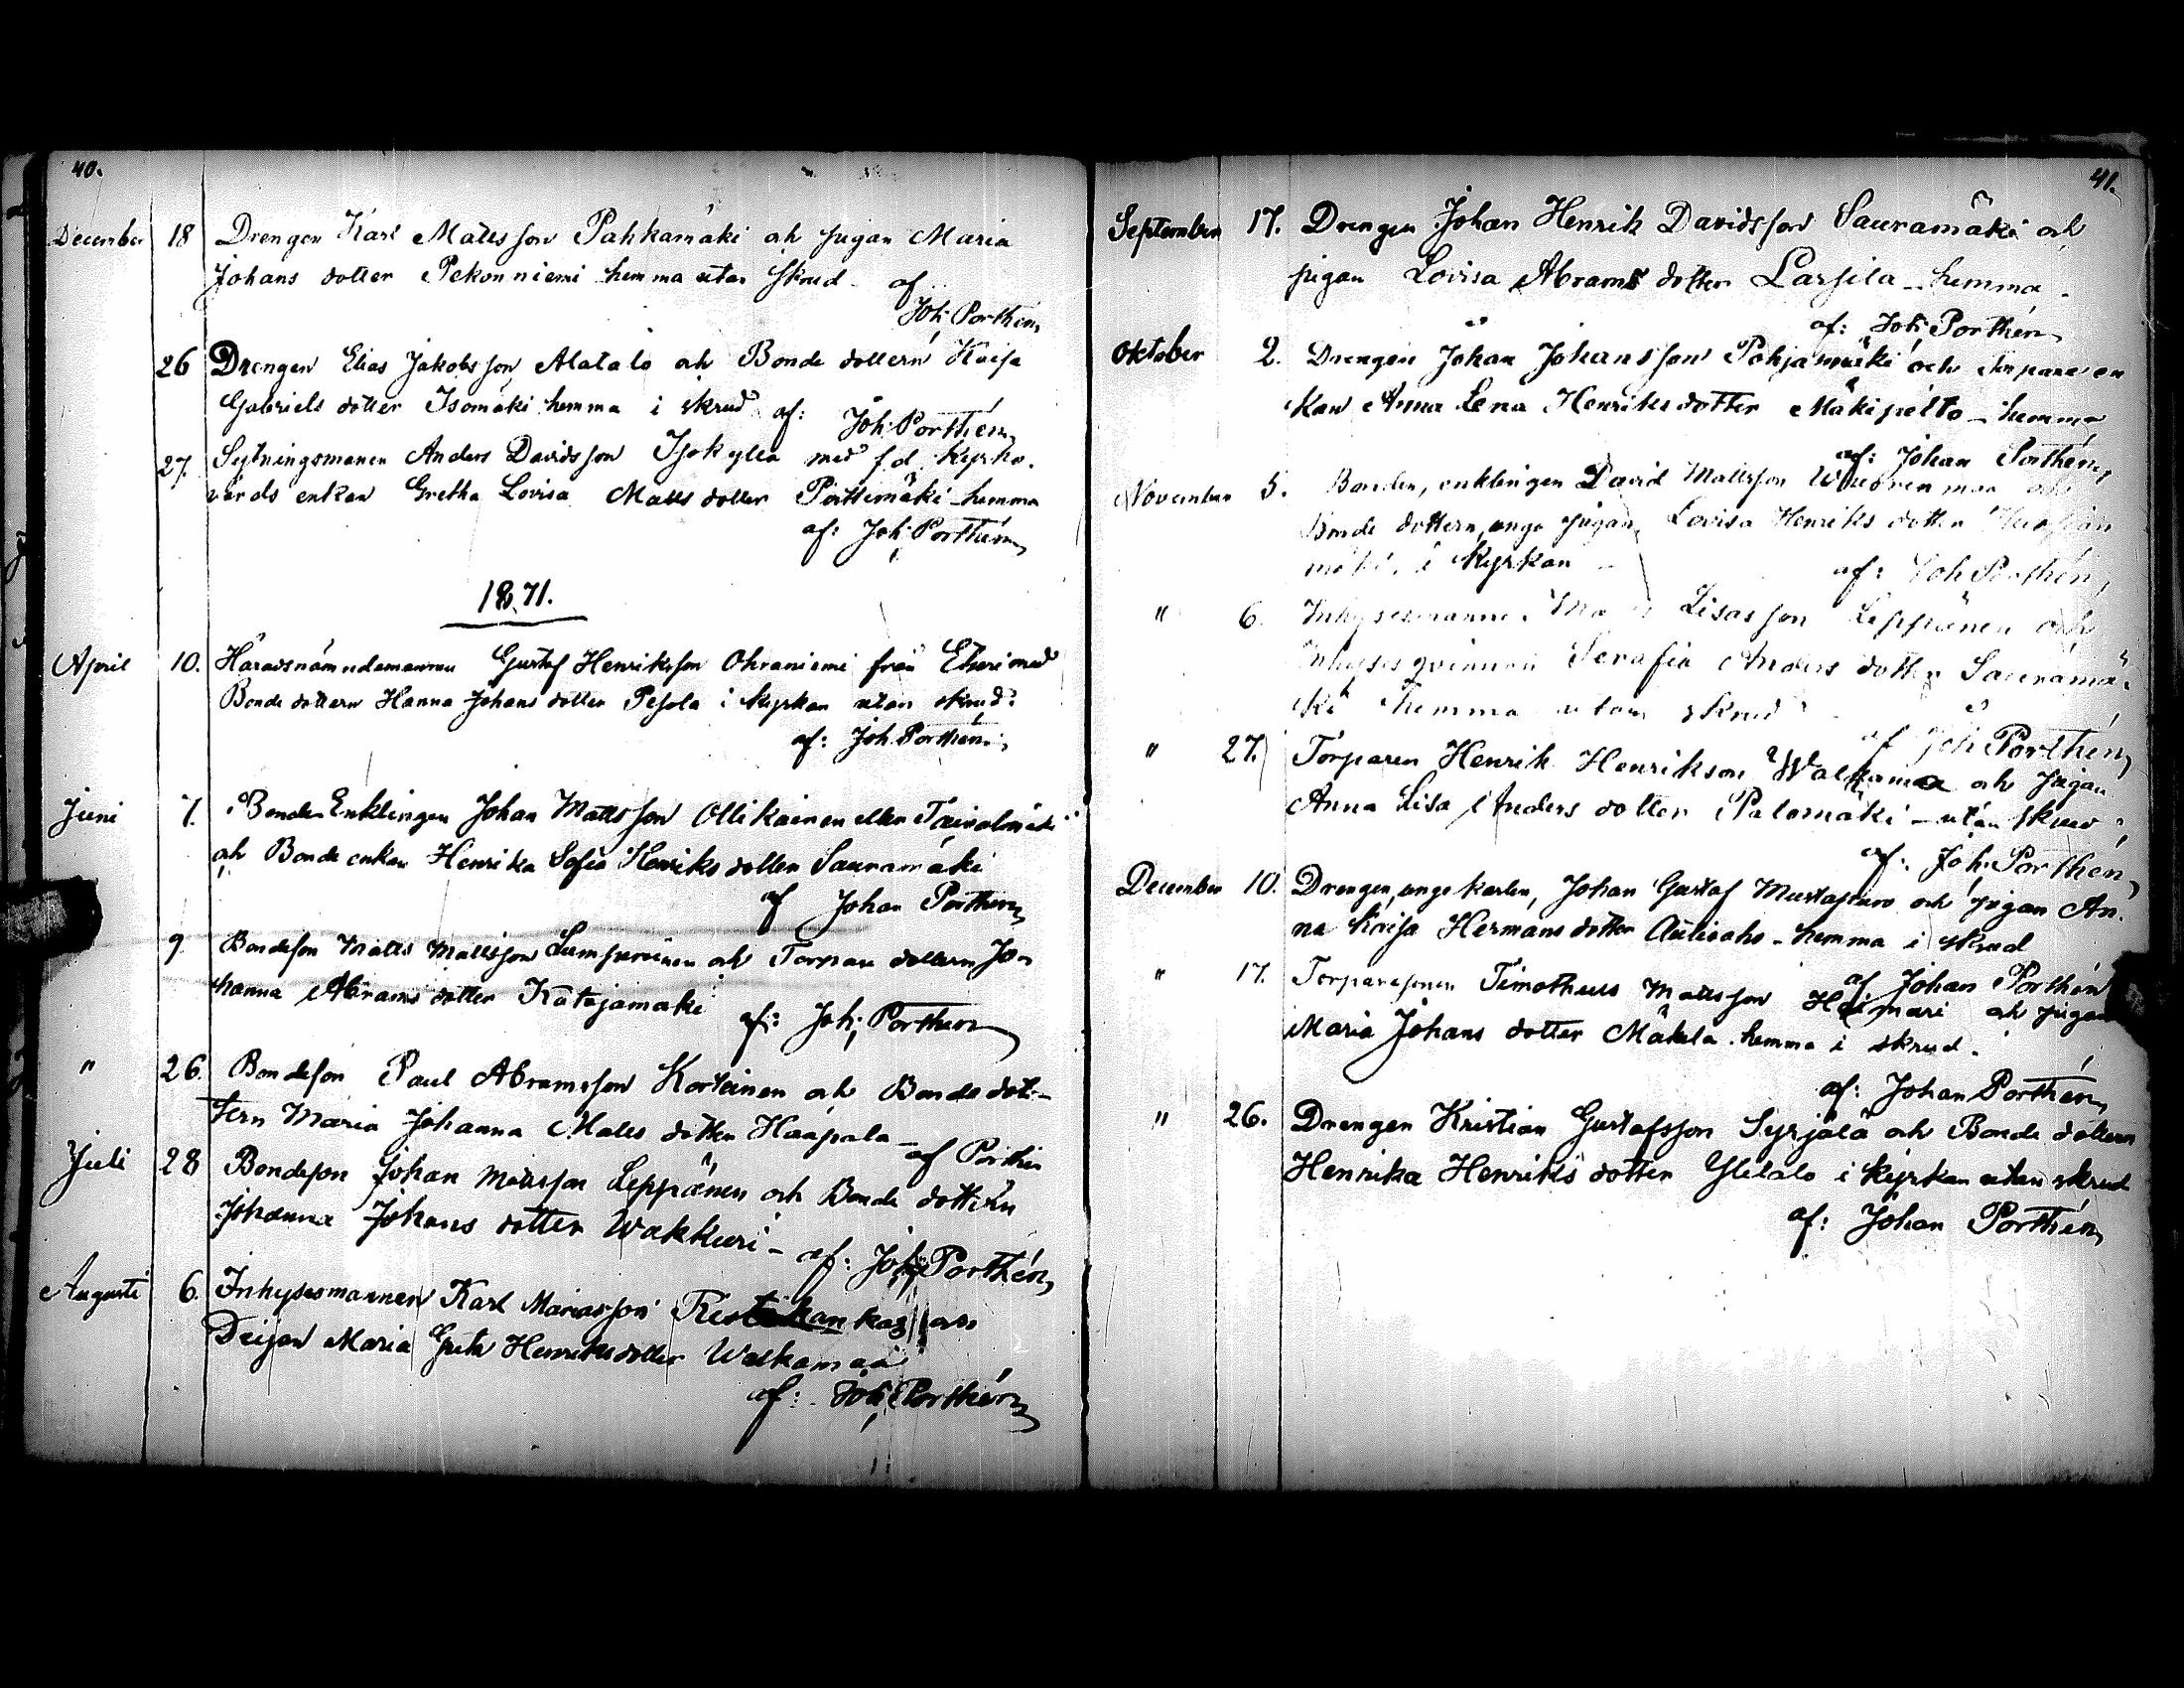 40.
December 18 Drengen Karl Mattsson Pahkamäki och pigan Maria
Johans dotter Pekonniemi hemma utan skrud af
Joh. Porthén
26 Drengen Elias Jakobsson Alatalo och Bonde dottern Kaisa
Gabriels dotter Isomäki hemma i skrud af: Joh. Porthén
27. Sytningsmanen Anders Davidsson Isokylla med f.d. kyrko-
värds enkan Gretha Lovisa Matts dotter Pöttimäki hemma
af: Joh. Porthén
1871.
April 10. Häradsnämndemannen Gustaf Henriksson Ohraniemi från Etseri med
Bonde dottern Hanna Johans dotter Pesola i kyrkan utan skrud.
af: Joh. Porthén
Juni 7. Bonden Enklingen Johan Mattsson Ollikainen eller Taivalmäki
och Bonde enkan Henrika Sofia Henriks dotter Sauramäki
af Johan Porthén
9 Bondeson Matts Mattsson och Torpare dottern Jo-
hanna Abrams dotter Katajamäki af: Joh. Porthén
" 26. Bondeson Paul Abramsson Korteinen och Bonde dot-
tern Maria Johanna Matts dotter Haapala — af Porthén
Juli 28 Bondeson Johan Mattsson Leppänen och Bonde dottern
Johanna Johans dotter Wakkuri — af: Joh. Porthén
Augusti 6. Inhysesmannen Karl Mariasson och
Deijan Maria Greta Henriksdotter Walkamaa
af: Joh. Porthén
41.
September 17. Drengen Johan Henrik Davidsson Sauramäki och
pigan Lovisa Abrams dotter Lassila — hemma.
af: Joh. Porthén
Oktober 2. Drengen Johan Johansson Pohjamäki och torpare en
kan Anna Lena Henriksdotter Mäkipelto — hemma
af: Johan Porthén
November 5. Bonden, enklingen David Mattsson Wuorenmaa och
Bonde dottern, unga pigan, Lovisa Henriks dotter
mäki, i kyrkan — af: Joh Porthén
" 6. Inhysesmannen Lisasson Leppänen och
Inhyses qvinnan Serafia Anders dotter Sauramä-
ki hemma utan skrud
af Joh Porthén
" 27. Torparen Henrik Henrikson Walkama och pigan
Anna Lisa Anders dotter Palomäki — utan skrud
af: Joh. Porthén
December 10. Drengen, unge karlen, Johan Gustaf Mustapuro och pigan An-
na Kaisa Hermans dotter Autioaho — hemma i skrud
af Johan Porthén
" 17. Torparesonen Timotheus Mattsson Heimari och pigan
Maria Johans dotter Mäkelä hemma i skrud.
af: Johan Porthén
" 26. Drengen Kristian Gustafsson Syrjälä och Bonde dottern
Henrika Henriks dotter Ylitalo i kyrkan utan skrud
af: Johan Porthén